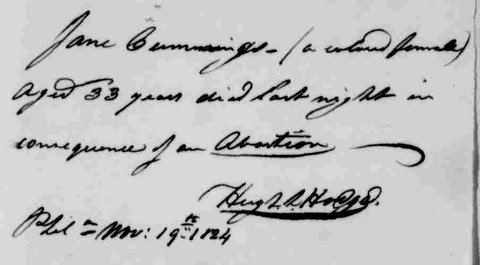 Jane Cummings - (a colored female)
Aged 33 years died last night in
consequence of an Abortion
Hugh L Hodge.
Phila Nov: 19th 1824